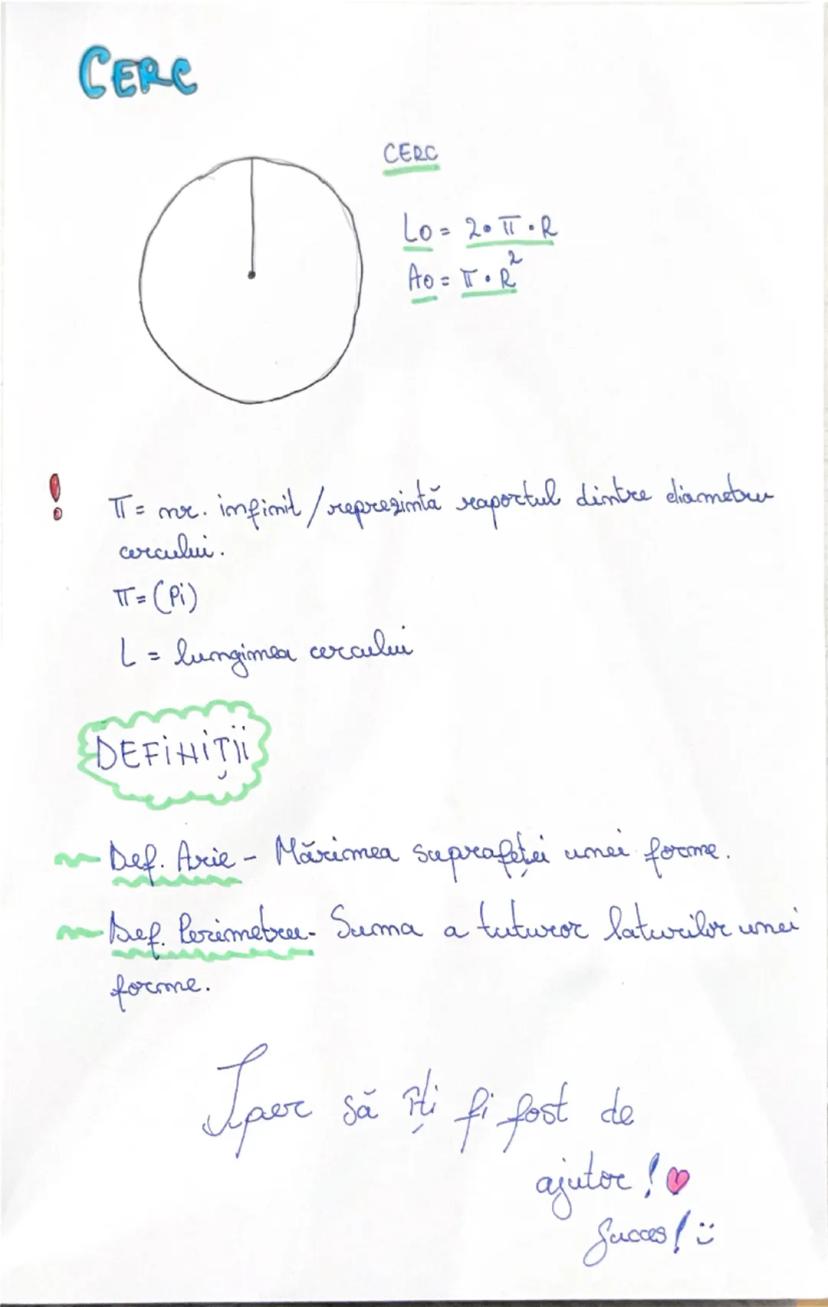 CERC
CERC
Lo = 2•π•R
Ao = π•R²
! π = nr. infinit / reprezintă raportul dintre diametru
cercului.
π = (Pi)
L = lungimea cercului
DEFINIȚII
~ Def. Arie - Mărimea suprafeței unei forme.
~ Def. Perimetru - Suma a tuturor laturilor unei
forme.
Sper să îți fi fost de
ajutor! ♥
Succes! :)